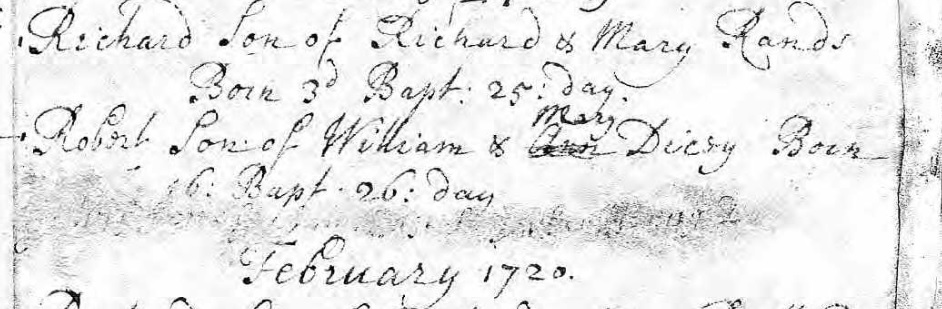 Richard Son of Richard & Mary Rands
Born 3d Bapt: 25: day.
Mary
Robert Son of William & Ann Dicey Born
16: Bapt. 26: day
February 1720.